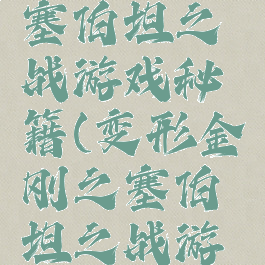 塞伯坦之
战游戏秘
籍(变形金
刚之塞伯
坦之战游